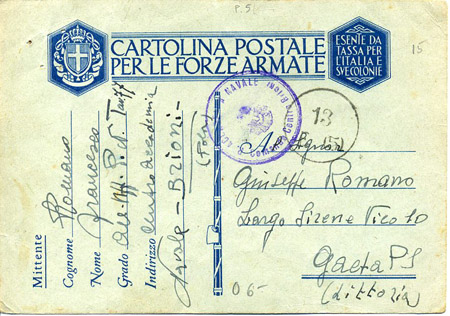 P. 5
CARTOLINA POSTALE
PER LE FORZE ARMATE
ESENTE DA
TASSA PER
L'ITALIA E
SVE COLONIE
15
NAVALE
13
Al Signor
Giuseppe Romano
Largo Sirene Vico 10
Gaeta PS
(Littoria)
06-
Mittente
Cognome Romano
Nome Francesco
Grado
Indirizzo Accademia
Navale - Brioni -
(Pola)